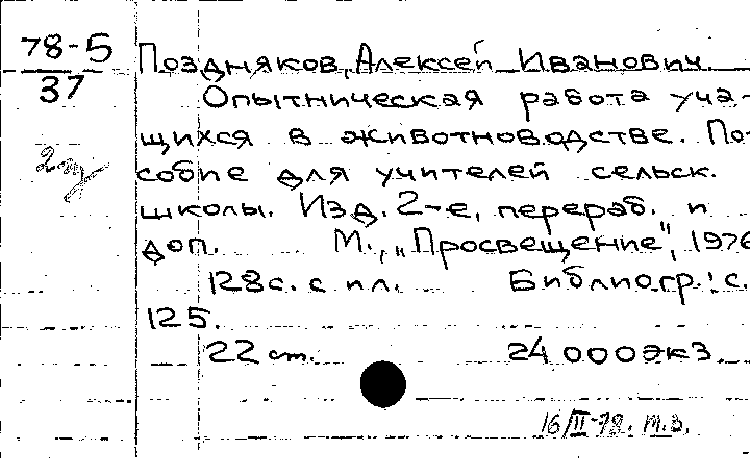 78-5
37
Поздняков, Алексей Иванович
Опытническая работа уча-
щихся в животноводстве. По-
собие для учителей сельск.
школы. Изд. 2-е, перераб. и
доп. М., „Просвещение", 1976
128с. с ил. Библиогр.: с.
125.
22 см. 24 000 экз.
16/II-78. т.з.